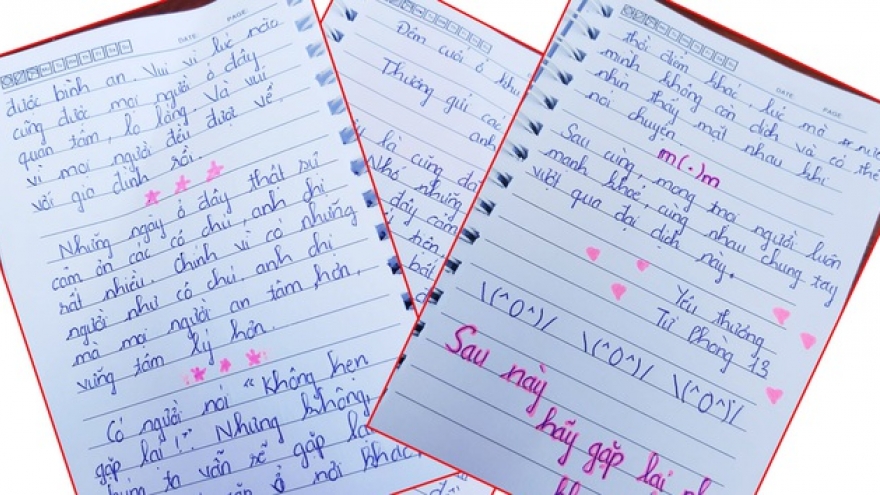 DATE PAGE
được bình an. Vui vì lúc nào
cũng được mọi người ở đây
quan tâm, lo lắng. Và vui
vì mọi người đều được về
với gia đình rồi.
Những ngày ở đây thật sự
cảm ơn các cô chú, anh chị
rất nhiều. Chính vì có những
người như cô chú, anh chị
mà mọi người an tâm hơn,
vững tâm lý hơn.
Có người nói "Không hẹn
gặp lại!". Nhưng không,
ta vẫn sẽ gặp lại
ở nơi khác,
DATE
Đêm cuối ở khu
Thương gửi các
anh
là cũng đã
Nhớ những
đây cảm
hơn,
bất
DATE PAGE
thời điểm khác, lúc mà nước
mình không còn dịch và có thể
nhìn thấy mặt nhau khi
nói chuyện.
m(-)m
Sau cùng, mong mọi người luôn
mạnh khoẻ, cùng nhau chung tay
vượt qua đại dịch này.
Yêu thương
Từ phòng 13
\(^O^)/ \(^O^)/ \(^O^)/
Sau này
hãy gặp lại